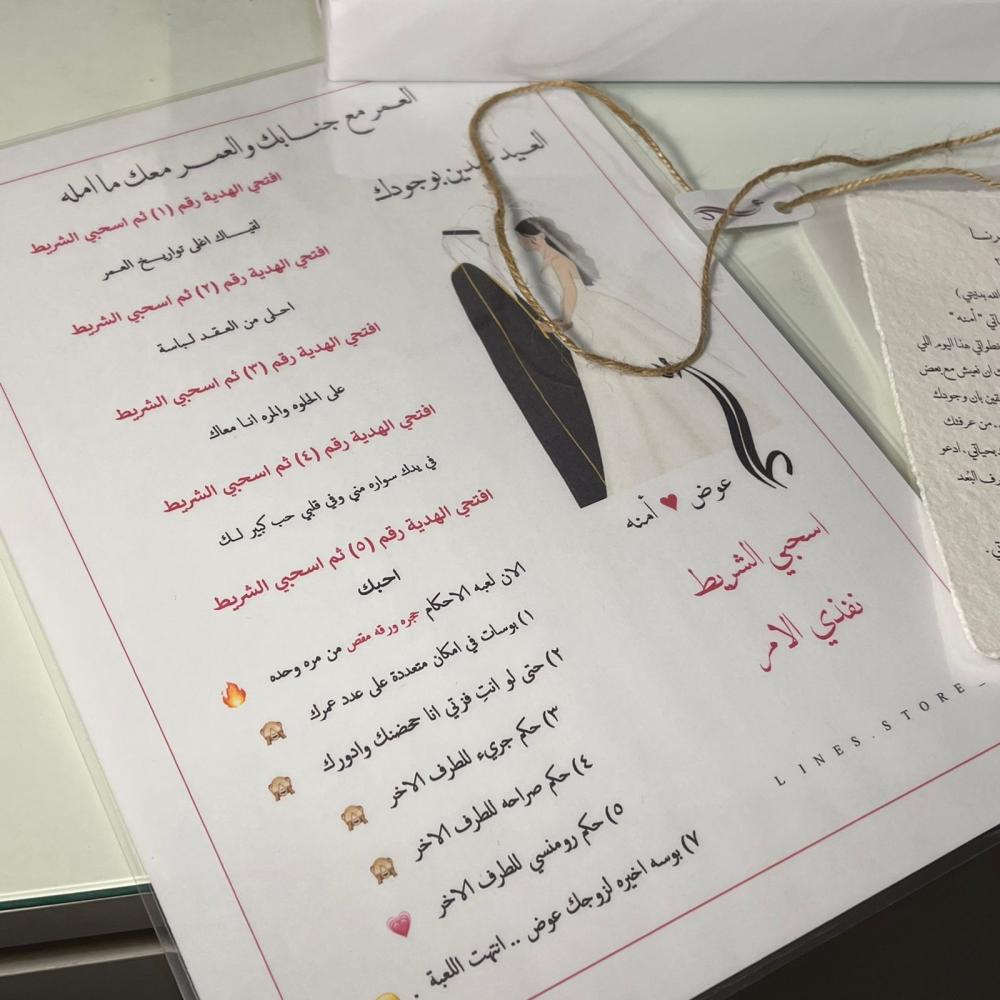 العمر مع جنابك والعمر معك ما امله
العيد عيدين بوجودك
افتحي الهدية رقم (١) ثم اسحبي الشريط
لقيـــاك اغلى تواريـــخ العمر
افتحي الهدية رقم (٢) ثم اسحبي الشريط
احلى من العـقـد لـبـاسة
افتحي الهدية رقم (٣) ثم اسحبي الشريط
على الحلوه والمره انـا معاك
افتحي الهدية رقم (٤) ثم اسحبي الشريط
في يدك سواره مني وفي قلبي حب كبير لـك
افتحي الهدية رقم (٥) ثم اسحبي الشريط
احبك
الان لعبه الاحكام حجره ورقه مقص من مره وحده
١) بوسات في امكان متعددة على عدد عمرك 🔥
٢) حتى لو انتِ فزتي انا حضنك وادورك 🙈
٣) حكم جريء للطرف الاخر 🙈
٤) حكم صراحه للطرف الاخر 🙈
٥) حكم رومنسي للطرف الاخر 🙈
٧) بوسه اخيره لزوجك عوض .. انتهت اللعبة . 💗
عوض ♥ أمنه
اسحبي الشريط
نفذي الامر
LINES.STORE_
"أمنه"
هذا اليوم اللي
ان نعيش مع بعض
بأن وجودك
من عرفتك
بحياتي . ادعو
البُعد